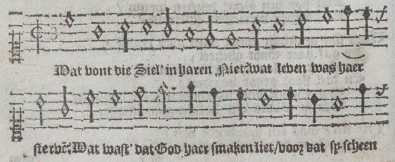 Wat vont die Siel' in haren Niet: wat leven was haer
sterven: Wat wast' dat God haer smaken liet / voor dat sy scheen